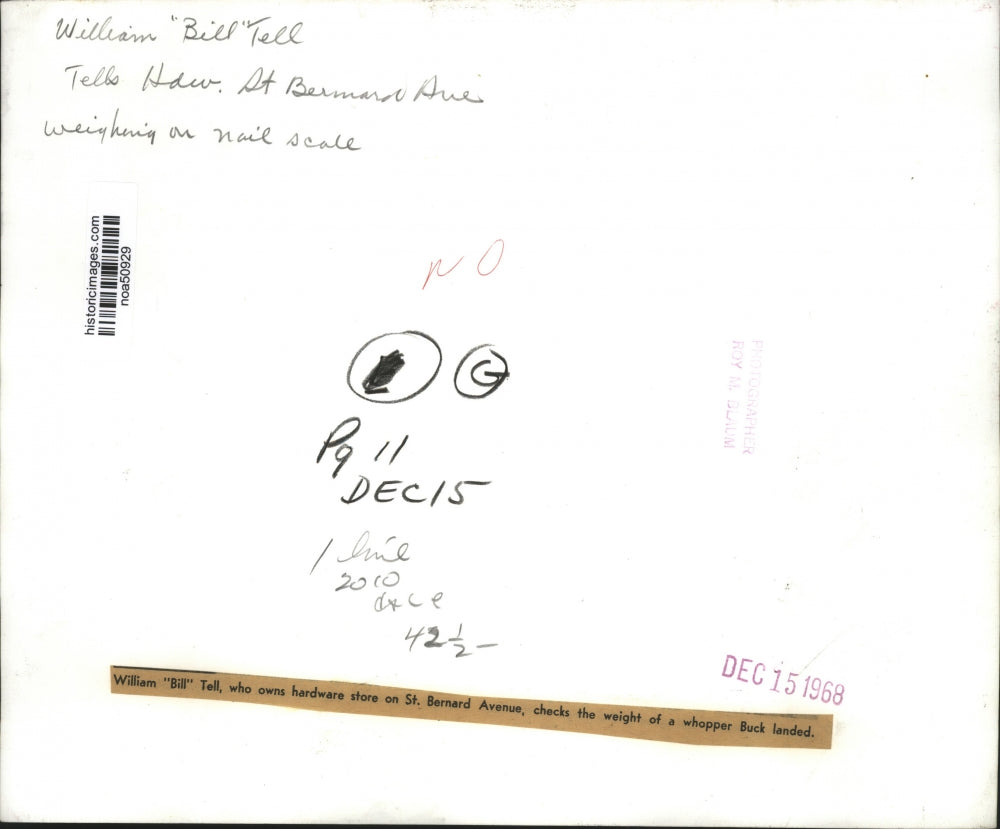 William "Bill" Tell
Tells Hdw. St Bernard Ave
weighing on nail scale
historicimages.com
noa50929
NO
G
PHOTOGRAPHER
ROY M. BLAUM
Pg 11
DEC 15
1 line
2010
42 ½ -
DEC 15 1968
William "Bill" Tell, who owns hardware store on St. Bernard Avenue, checks the weight of a whopper Buck landed.